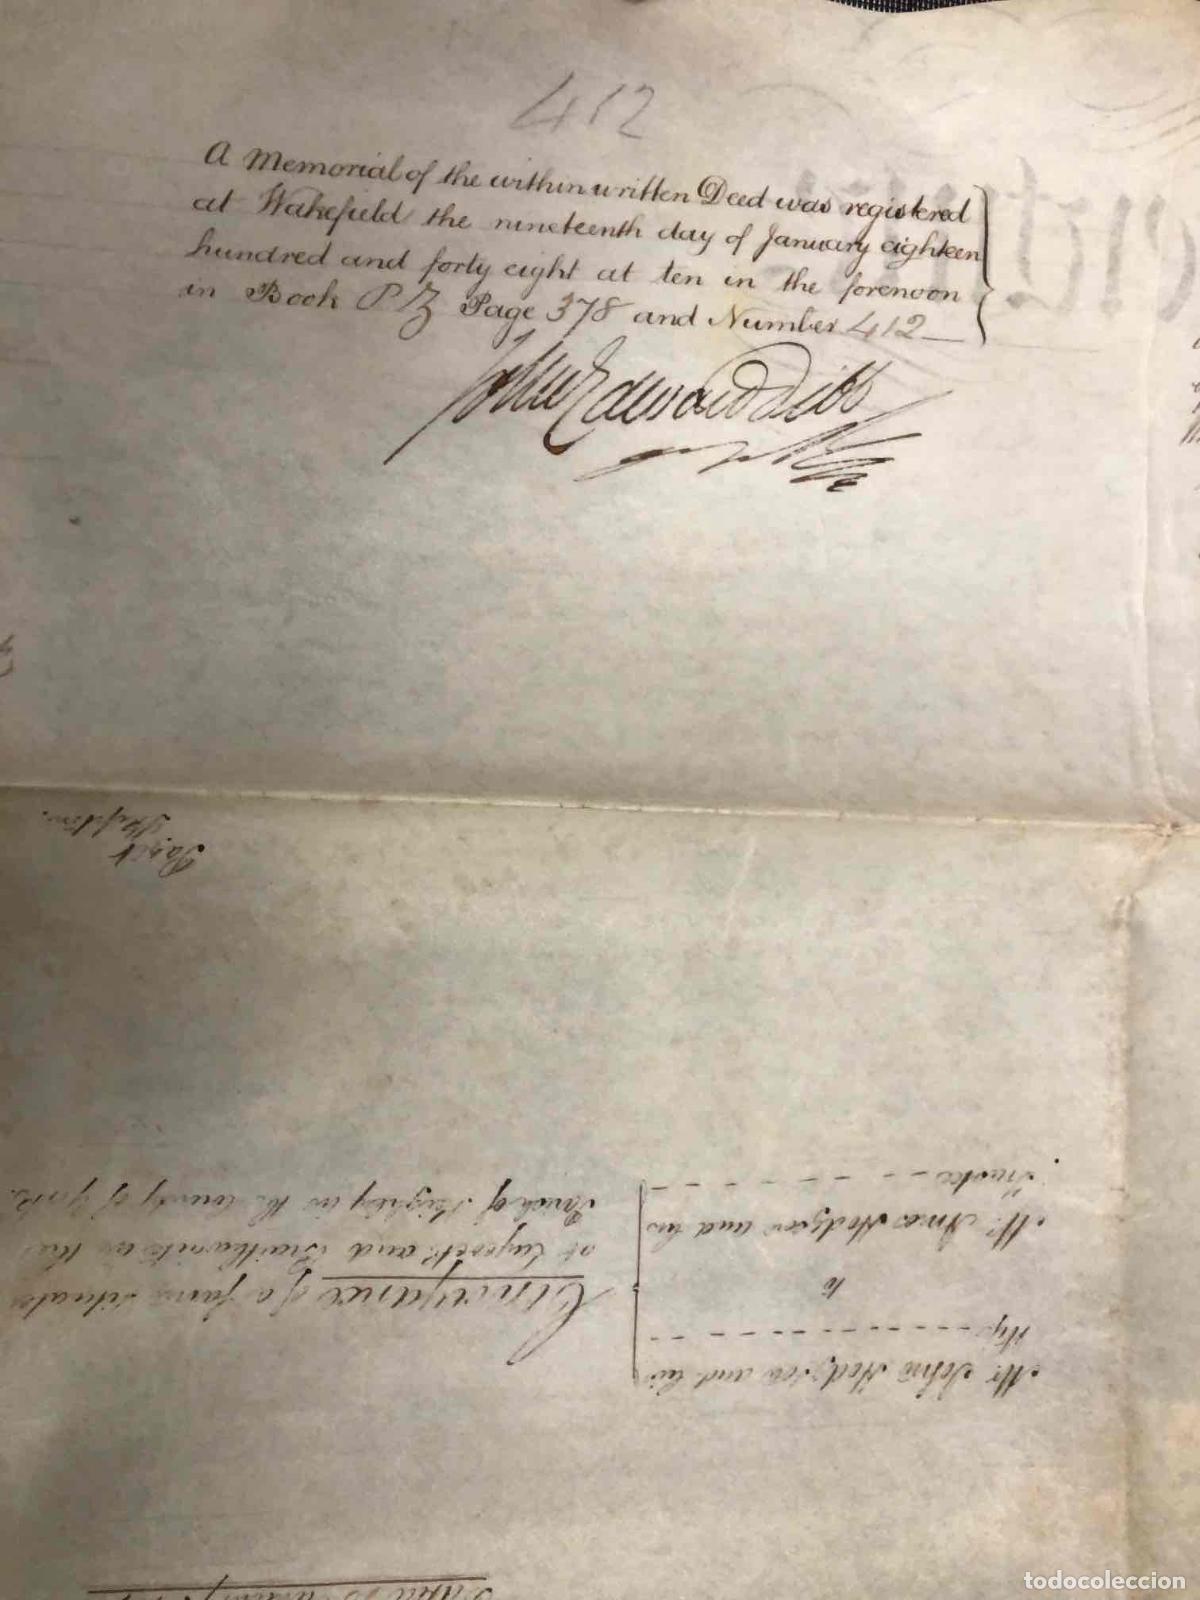 412
A Memorial of the within written Deed was registered
at Wakefield the nineteenth day of January eighteen
hundred and forty eight at ten in the forenoon
in Book P Z Page 378 and Number 412
John Edward Dibb
Mr. John Hodgson and his
to
Mr. Amos Hodgson and his
Trustee
Conveyance of a farm situate
at and Braithwaite in the
Parish of Keighley in the County of York.
todocoleccion